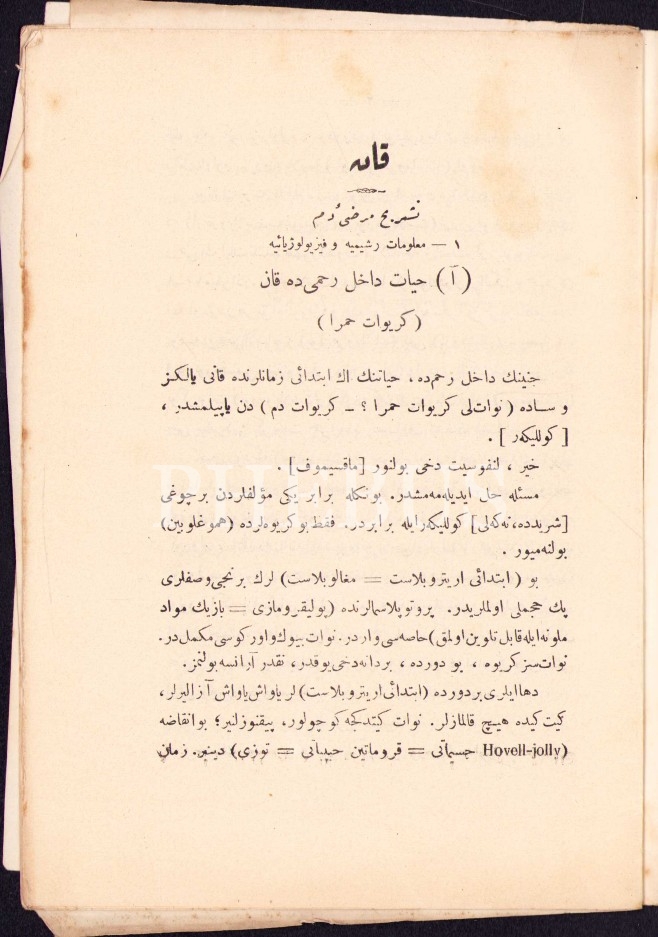 قان
تشریح مرضیٔ دم
۱ — معلومات رشیمیه و فیزیولوژیائیه
(آ) حیات داخل رحمی‌ده قان
(کریوات حمرا)
جنینك داخل رحم‌ده، حیاتنك اك ابتدائی زمانلرنده قانی یالکز
و ساده (نوات‌لی کریوات حمرا ؟ — کریوات دم) دن یاپیلمشدر،
[کوللیکەر].
خیر، لنفوسیت دخی بولنور [ماقسیموف].
مسئله حل ایدیله‌مه‌مشدر. بونكله برابر یکی مؤلفلردن برچوغی
[شریدده، نه‌کەلی] کوللیکەرایله برابردر. فقط بوکریوه‌لرده (هموغلوبین)
بولنه‌میور.
بو (ابتدائی اریتروبلاست = مغالوبلاست) لرك برنجی وصفلری
پك حجملی اولملریدر. پروتوپلاسمالرنده (پولیقرومازی = بازیك مواد
ملونه‌ایله قابل تلوین اولمق) خاصه‌سی واردر. نوات بیوك واورکوسی مکمل‌در.
نوات‌سز کریوه، بو دورده، بردانه‌دخی یوقدر، نقدر آرانسه بولنمز.
دها ایلری بردورده (ابتدائی اریتروبلاست) لر یاواش یاواش آزالیرلر،
کیت کیده هیچ قالمازلر. نوات کیتدکجه کوچولور، پیقنوزلنیر؛ بوانقاضه
(Hovell-jolly جسیماتی = قروماتین حبیباتی = توزی) دینیر. زمان
PHEBUS